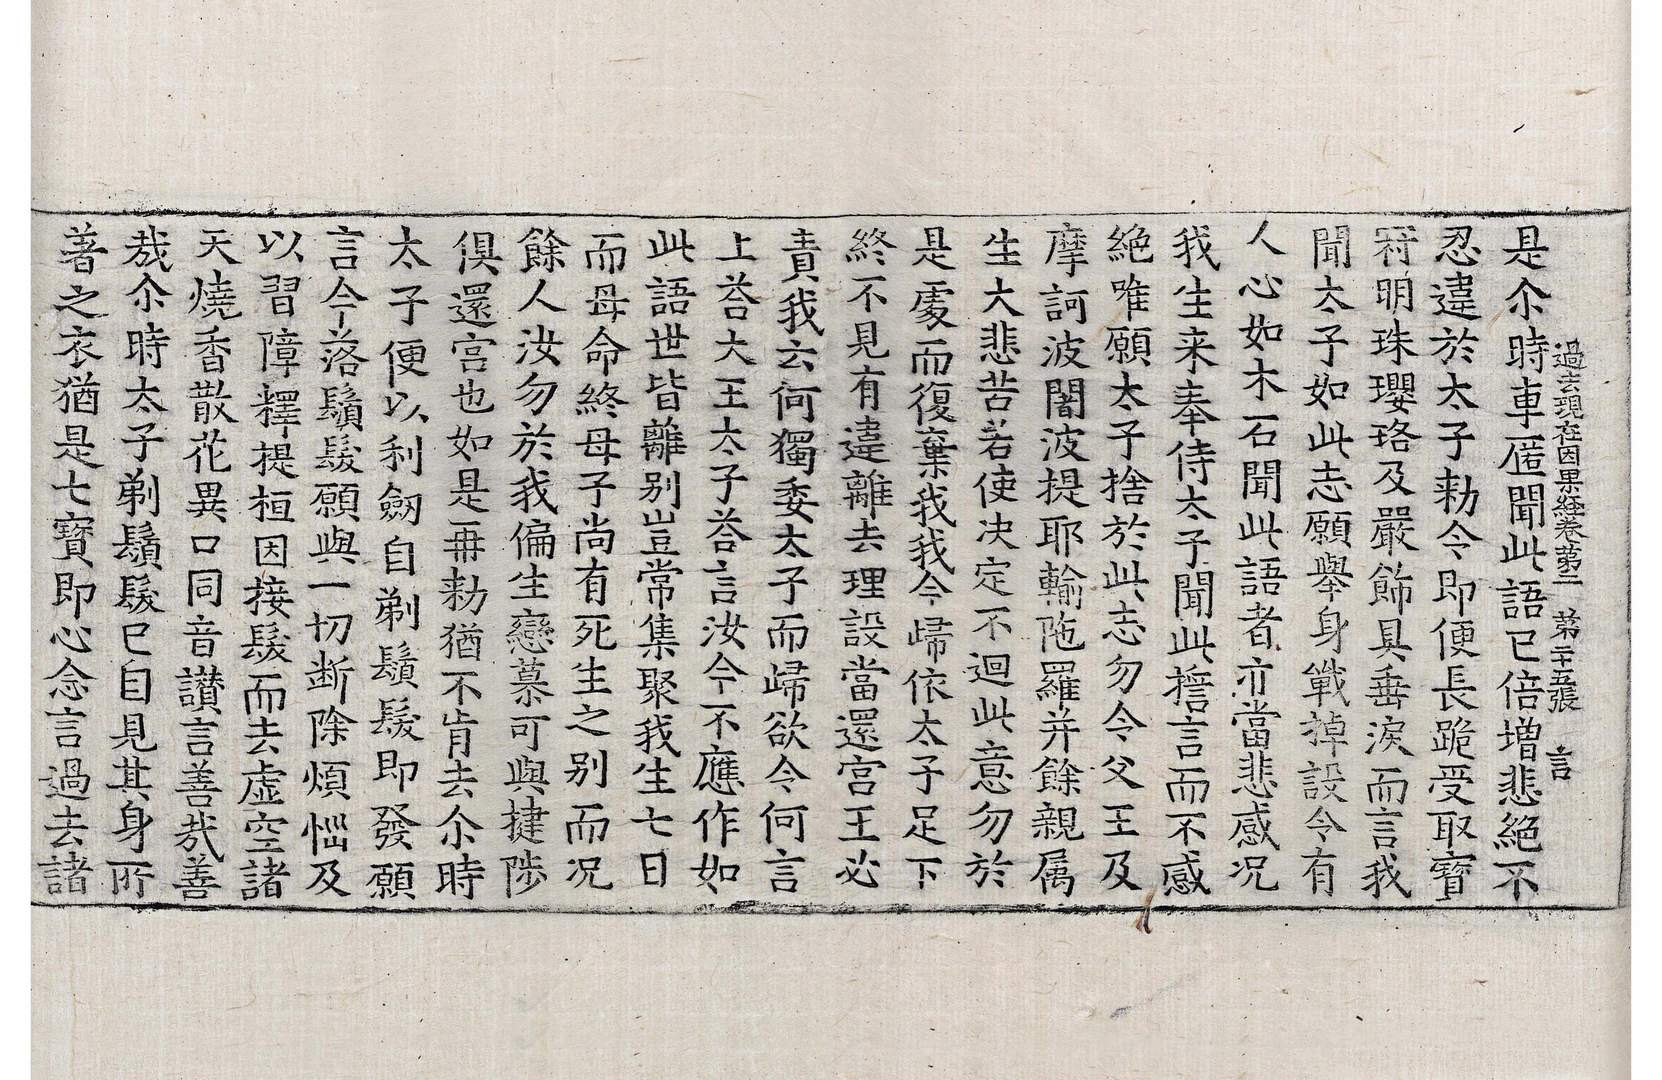 過去現在因果経卷苐二　苐二十五張　言
是尒時車匿聞此語已倍增悲絶不
忍違於太子勑令即便長跪受取寶
冠明珠瓔珞及嚴飾具垂淚而言我
聞太子如此志願舉身戰掉設令有
人心如木石聞此語者亦當悲感况
我生来奉侍太子聞此誓言而不感
絶唯願太子捨於此志勿令父王及
摩訶波闍波提耶輸陁羅并餘親属
生大悲苦若使决定不迴此意勿於
是處而復棄我我今㱕依太子足下
終不見有違離去理設當還宮王必
責我云何獨委太子而㱕欲令何言
上荅大王太子荅言汝今不應作如
此語世皆離别豈常集聚我生七日
而母命終母子尚有死生之别而况
餘人汝勿於我偏生戀慕可與揵陟
俱還宮也如是再勑猶不肯去尒時
太子便以利劔自剃鬚髮即發願
言今落鬚髮願與一切断除煩惱及
以習障釋提桓因接髮而去虚空諸
天燒香散花異口同音讃言善㢤善
㢤尒時太子剃鬚髮已自見其身所
著之衣猶是七寶即心念言過去諸